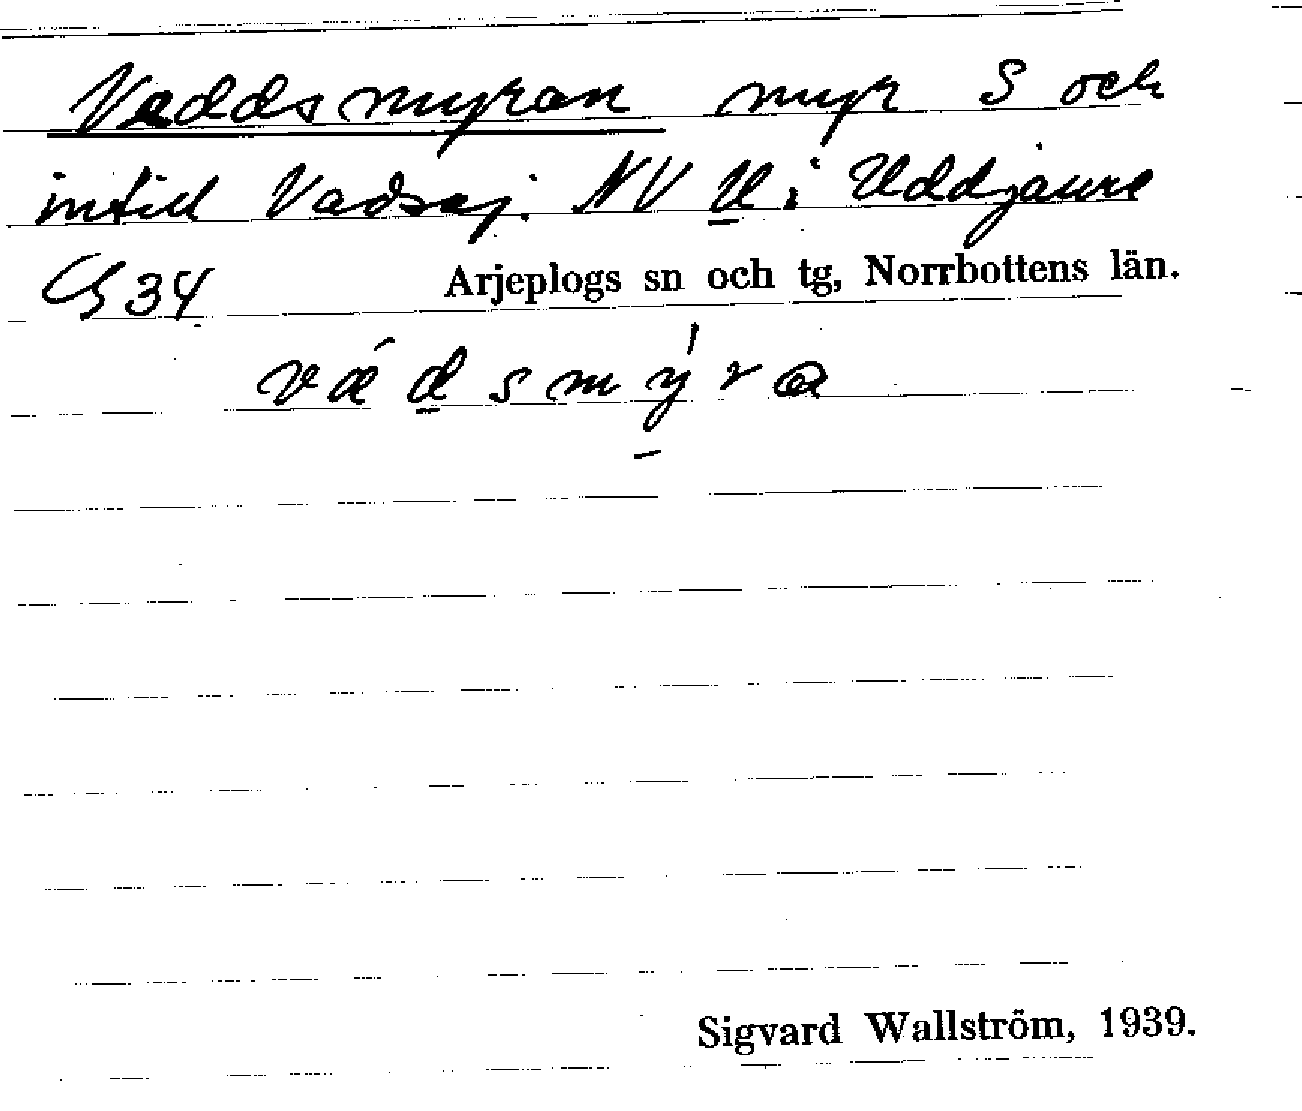 Veddsmyran myr S och
intill Vadsaj. NV U i Uddjaure
G 34 Arjeplogs sn och tg, Norrbottens län.
væ´dsmy´ra
Sigvard Wallström, 1939.